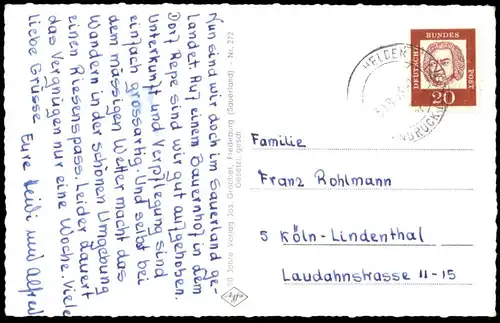 Nun sind wir doch im Sauerland ge-
landet. Auf einem Bauernhof in dem
Dorf Repe sind wir gut aufgehoben.
Unterkunft und Verpflegung sind
einfach grossartig. Und selbst bei
dem mässigen Wetter macht das
Wandern in der schönen Umgebung
einen Riesenspass. Leider dauert
das Vergnügen nur eine Woche. Viele
liebe Grüsse Eure Heidi und Alfred
10 Jahre Verlag Jos. Grobbel, Fredeburg (Sauerland) - Nr. 272
Gesetzl. gesch.
DEUTSCHE
BUNDES
POST
20
HELDEN
Familie
Franz Rohlmann
5 Köln-Lindenthal
Laudahnstrasse 11-15